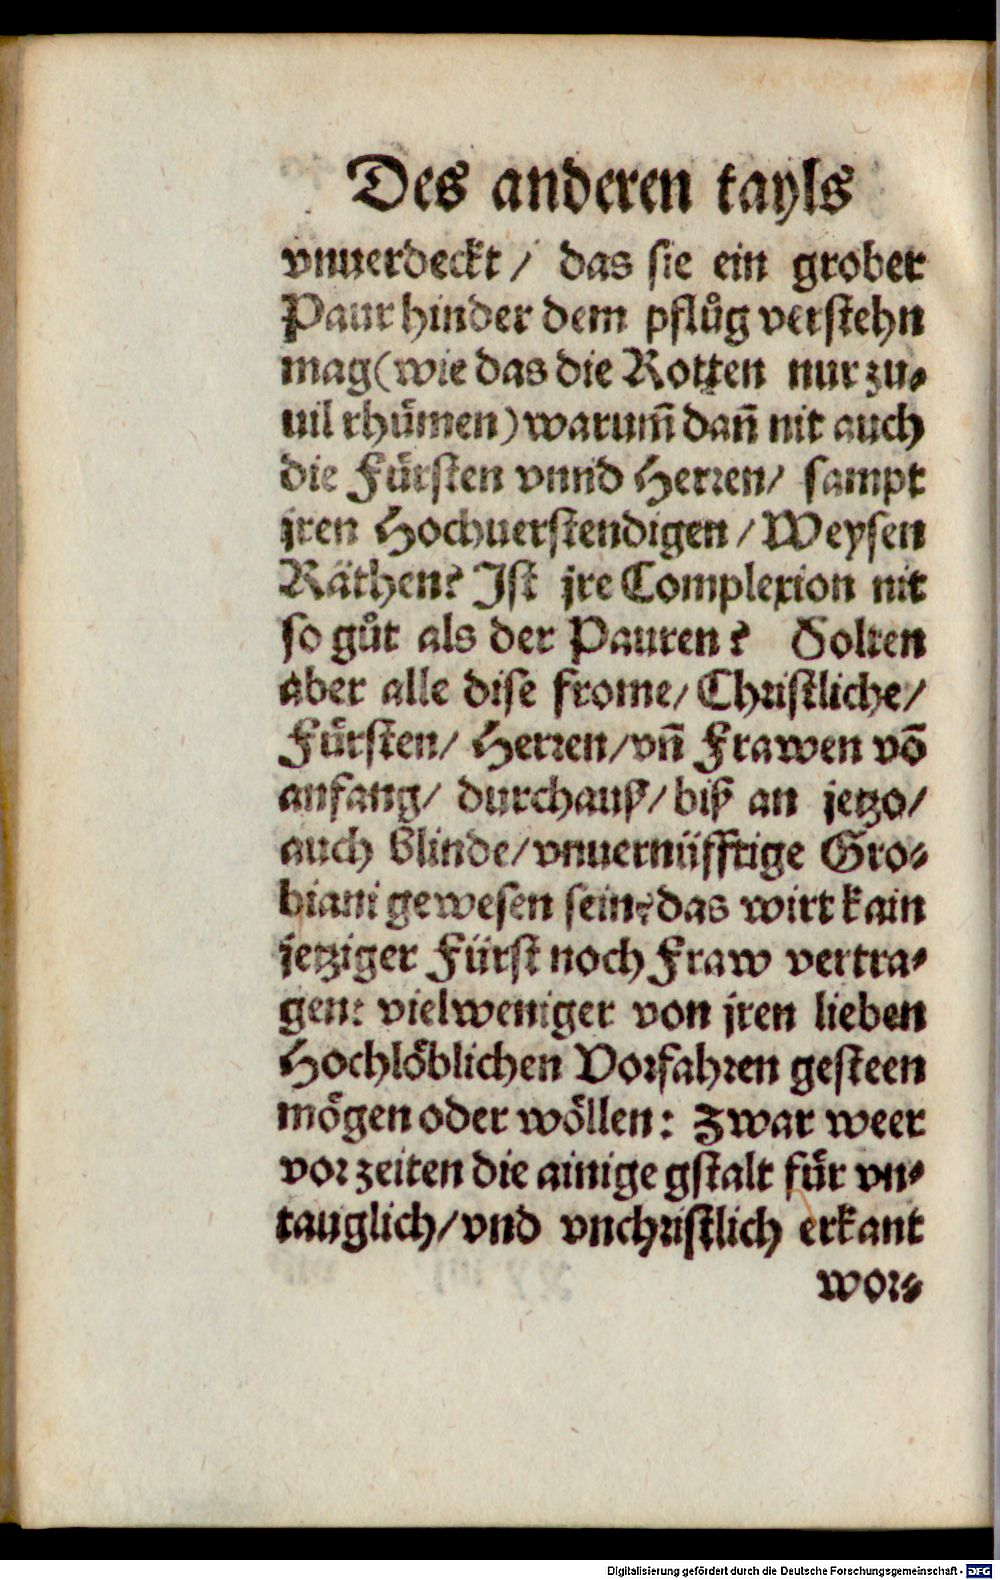 Des anderen tayls
vnuerdeckt / das sie ein grober
Paur hinder dem pflůg verstehn
mag (wie das die Rotten nur zu-
uil rhuͤmen) warum̄ dan̄ nit auch
die Fuͤrsten vnnd Herren / sampt
jren Hochuerstendigen / Weysen
Raͤthen? Ist jre Complexion nit
so gůt als der Pauren? Solten
aber alle dise frome / Christliche /
Fuͤrsten / Herren / vn̄ Frawen võ
anfang / durchauß / biß an jetzo /
auch blinde / vnuernüfftige Gro-
biani gewesen sein? das wirt kain
jetziger Fürst noch Fraw vertra-
gen: vielweniger von jren lieben
Hochloͤblichen Vorfahren gesteen
moͤgen oder woͤllen: Zwar weer
vor zeiten die ainige gstalt fuͤr vn-
tauglich / vnd vnchristlich erkant
wor-
Digitalisierung gefördert durch die Deutsche Forschungsgemeinschaft - DFG